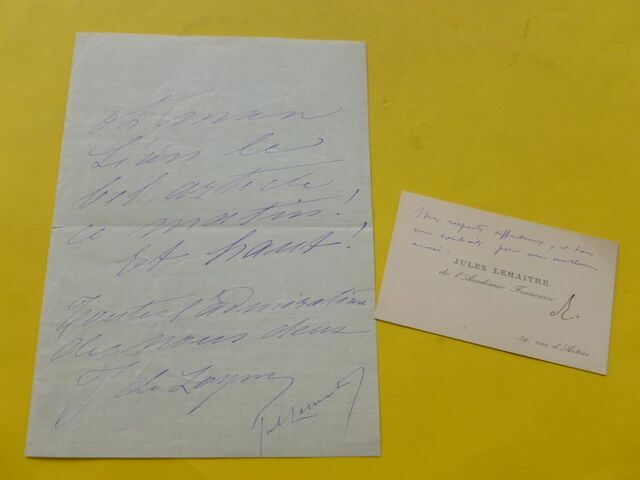 oh mon
Léon le
bel article
ce matin!
Et haut!
Toute l'admiration
de nous deux
J de Loynes
Jules Lemaitre
Mes respects affectueux, et tous
mes souhaits pour une meilleure
année.
JULES LEMAITRE
de l'Académie Française
39, rue d'Artois